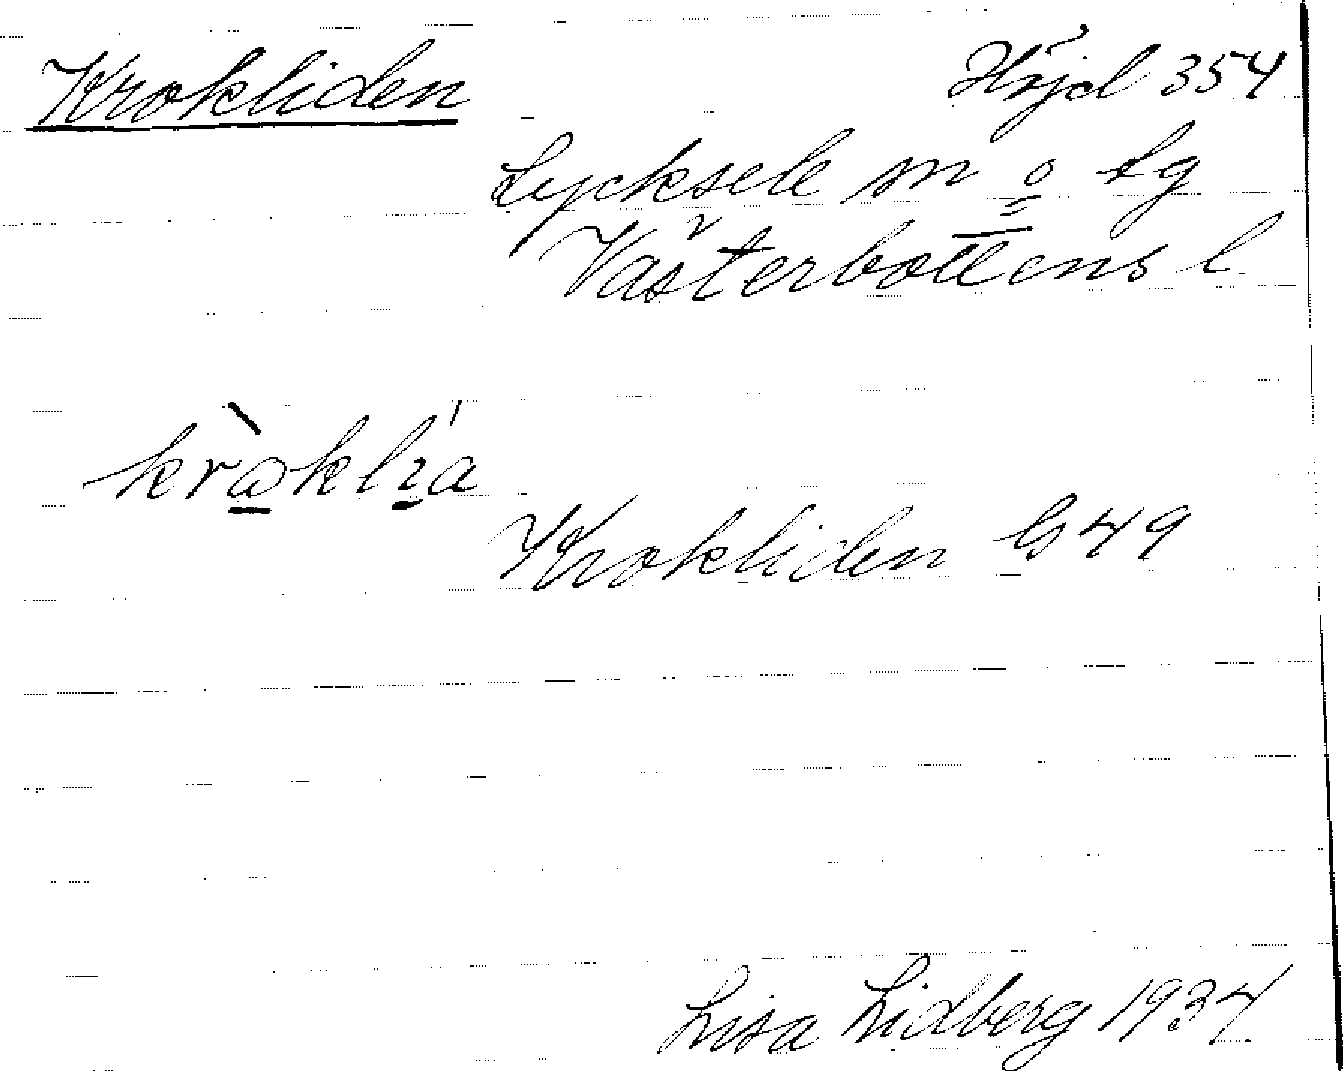 Krokliden Höjd 354
Lycksele sn o tg
Västerbottens l
Krokliden G 49
Lisa Lidberg 1934